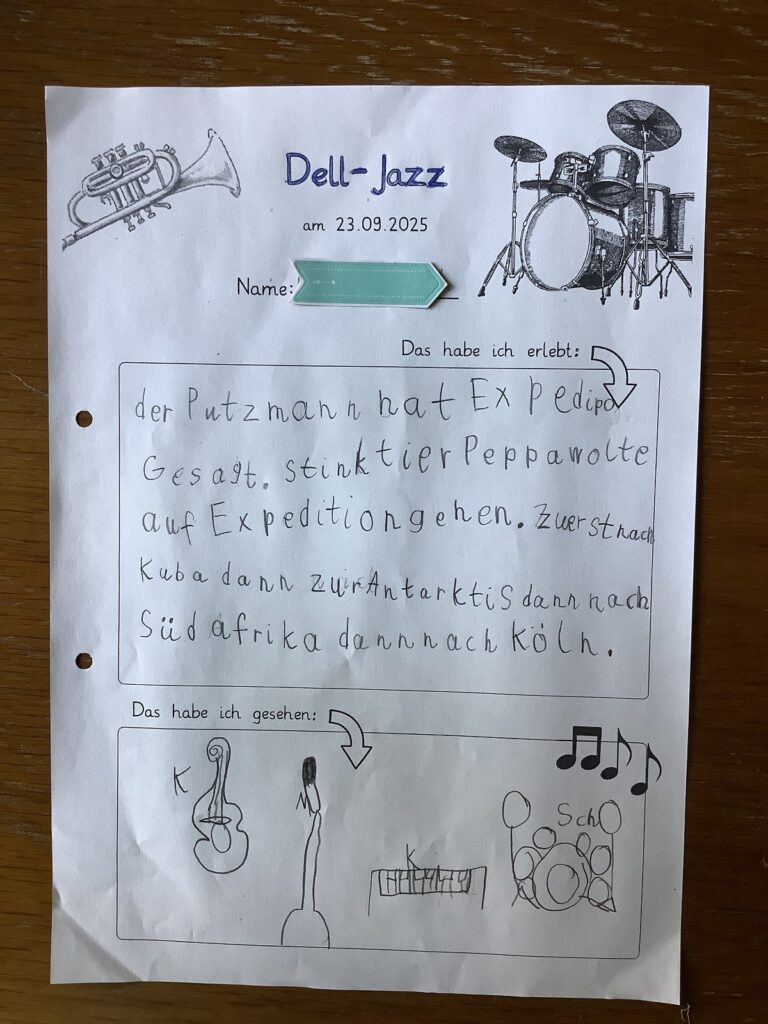 Dell-Jazz
am 23.09.2025
Name:
Das habe ich erlebt:
der Putzmann hat Expedipo
Gesagt. Stinktier Peppa wolte
auf Expedition gehen. Zuerst nach
Kuba dann zur Antarktis dann nach
Südafrika dann nach Köln.
Das habe ich gesehen:
K
M
K
Sch